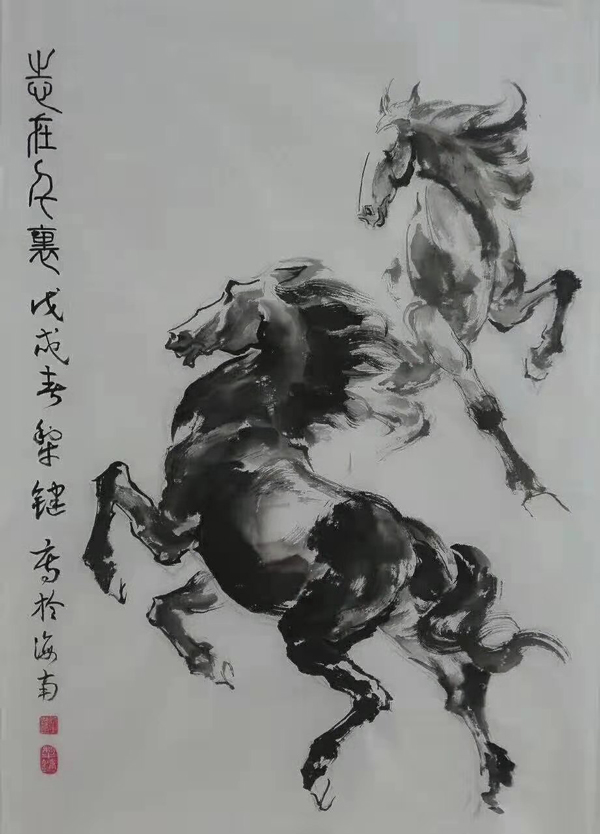 志在千里戊戌春犁键写於海南